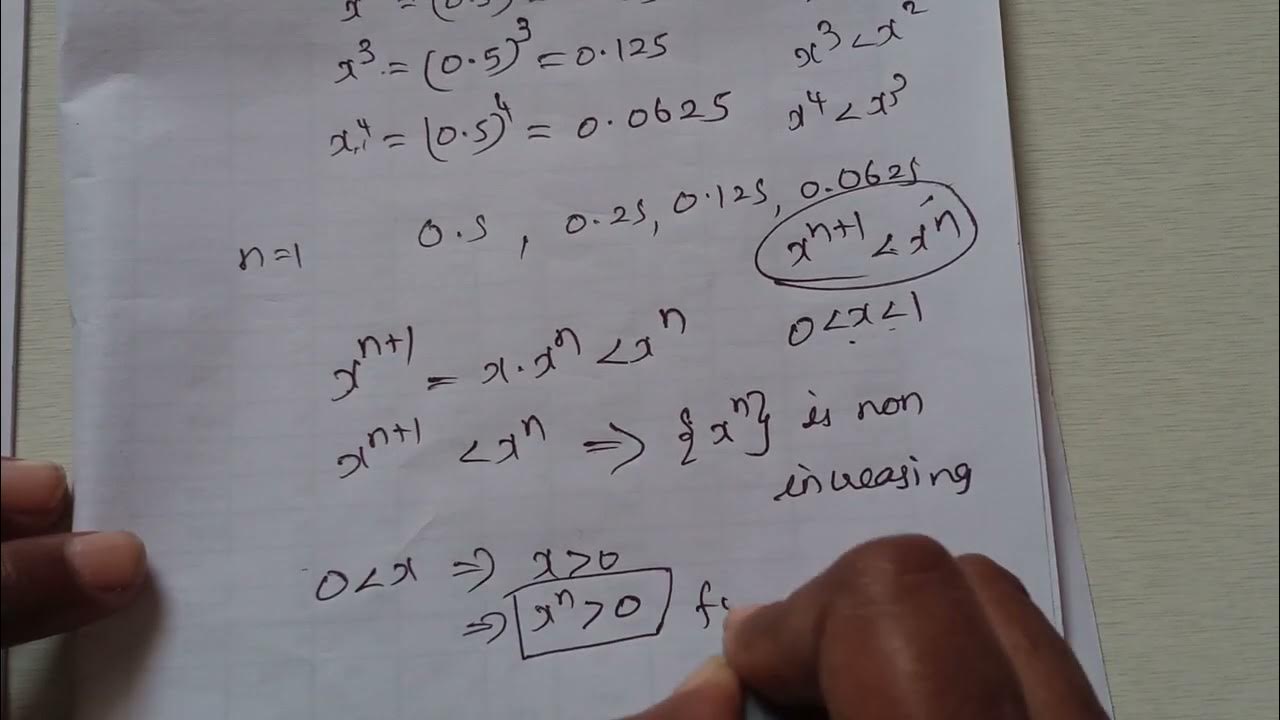 x³ = (0.5)³ = 0.125 x³ < x²
x⁴ = (0.5)⁴ = 0.0625 x⁴ < x³
0.5, 0.25, 0.125, 0.0625
n=1 xⁿ⁺¹ < xⁿ
0<x<1
xⁿ⁺¹ = x.xⁿ < xⁿ
xⁿ⁺¹ < xⁿ ⇒ {xⁿ} is non
increasing
0<x ⇒ x>0
⇒ xⁿ>0